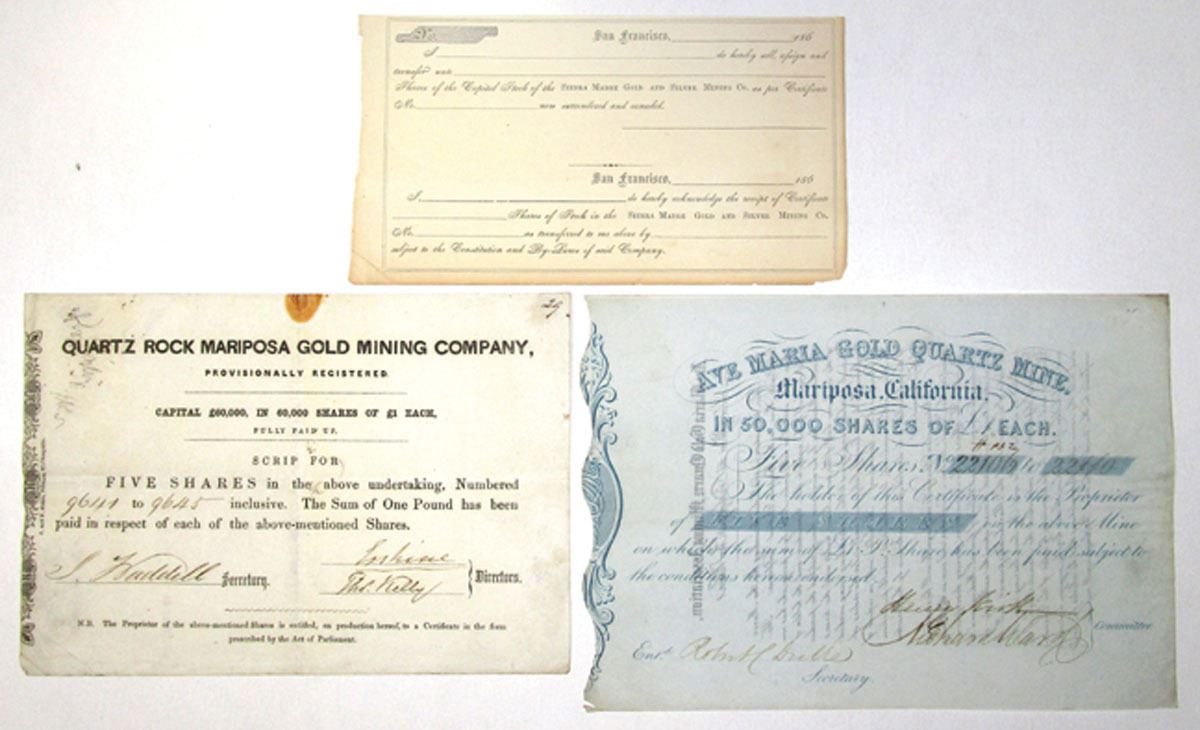 No.
San Francisco, 186
I do hereby sell, assign and
transfer unto
Shares of the Capital Stock of the SIERRA MADRE GOLD AND SILVER MINING CO. as per Certificate
No. now surrendered and canceled.
San Francisco, 186
I, do hereby acknowledge the receipt of Certificate
Shares of Stock in the SIERRA MADRE GOLD AND SILVER MINING CO.
No. as transferred to me above by
subject to the Constitution and By-Laws of said Company.
29.
QUARTZ ROCK MARIPOSA GOLD MINING COMPANY,
PROVISIONALLY REGISTERED.
CAPITAL £60,000, IN 60,000 SHARES OF £1 EACH,
FULLY PAID UP.
SCRIP FOR
FIVE SHARES in the above undertaking, Numbered
9641 to 9645 inclusive. The Sum of One Pound has been
paid in respect of each of the above-mentioned Shares.
Erskine
S. Waddell Secretary. Thos. Kelly Directors.
N.B. The Proprietor of the above-mentioned Shares is entitled, on production hereof, to a Certificate in the form
prescribed by the Act of Parliament.
AVE MARIA GOLD QUARTZ MINE,
Mariposa, California,
IN 50,000 SHARES OF £1 EACH.
Five Shares, No. 22106 to 22110
The holder of this Certificate is the Proprietor
of FIVE SHARES in the above Mine
on which the sum of £1 Pr. Share has been paid subject to
the conditions hereon endorsed.
Henry
Richard Ward Committee
Entd. Robert
Secretary.